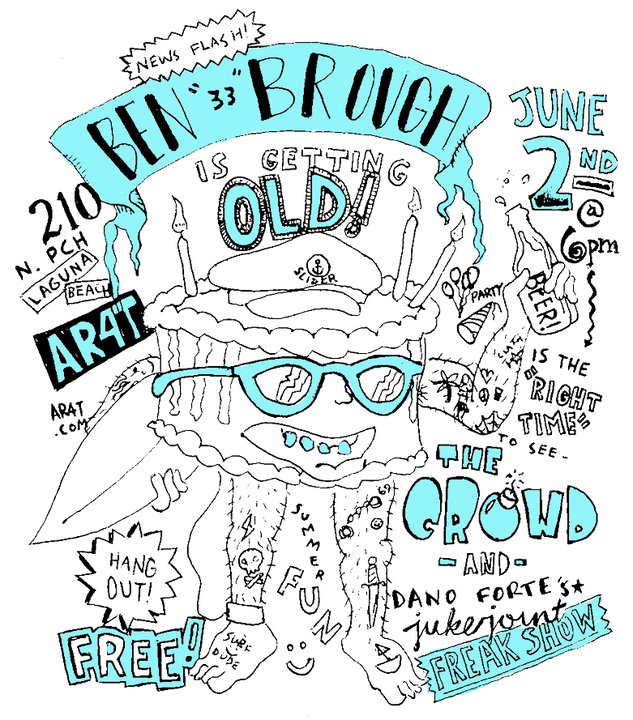 NEWS FLASH!
BEN "33" BROUGH
IS GETTING
OLD!
JUNE
2ND
@
6pm
210
N. PCH
LAGUNA
BEACH
AR4T
AR4T
.COM
SLIZER
PARTY
BEER!
IS THE
"RIGHT
TIME"
TO SEE-
THE
CROWD
-AND-
DANO FORTE'S
jukejoint
FREAK SHOW
HANG
OUT!
FREE!
SUMMER
FUN
SURF
DUDE